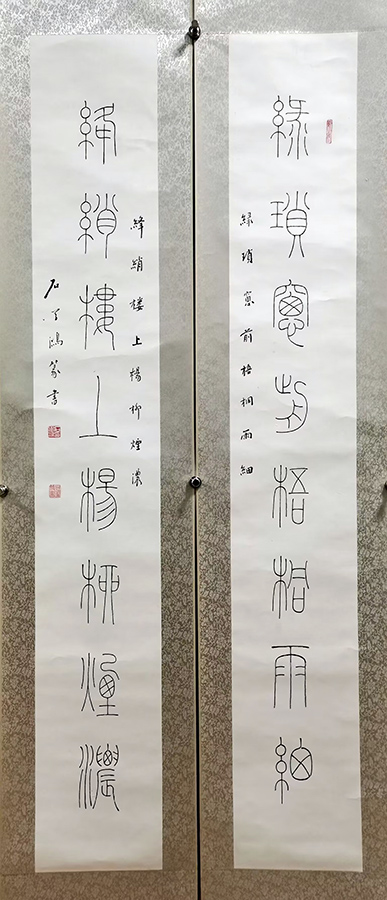 綠瑣窗前梧桐雨細
緑瑣窗前梧桐雨細
絳綃樓上楊柳煙濃
絳綃樓上楊柳煙濃
鴻篆書